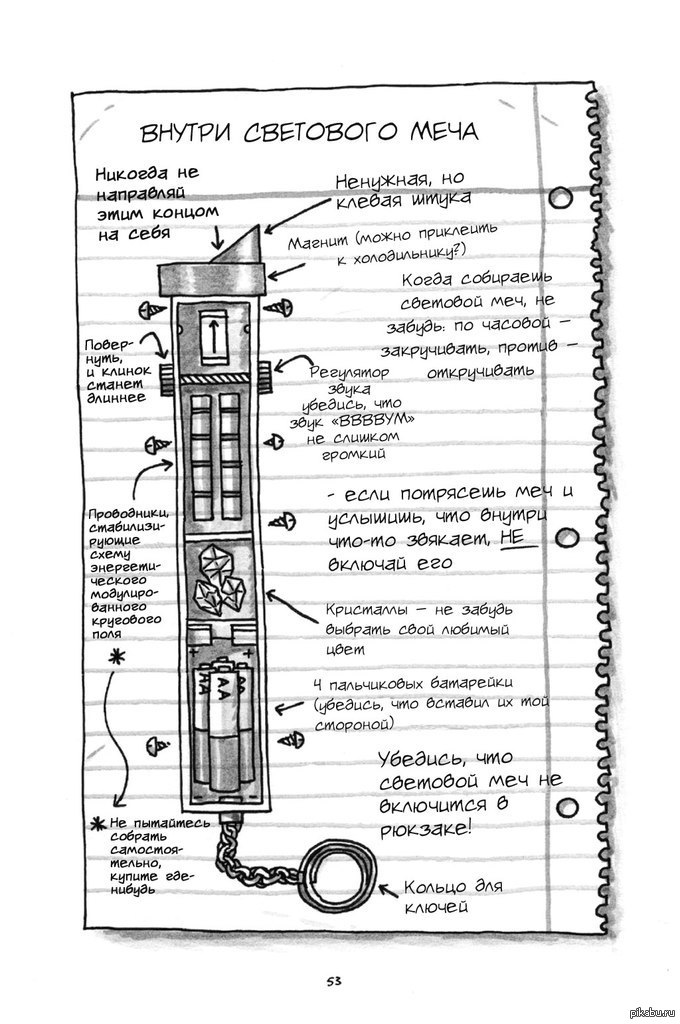 ВНУТРИ СВЕТОВОГО МЕЧА
Никогда не
направляй
этим концом
на себя
Ненужная, но
клевая штука
Магнит (можно приклеить
к холодильнику?)
Когда собираешь
световой меч, не
забудь: по часовой –
закручивать, против –
откручивать
Повер-
нуть,
и клинок
станет
длиннее
Регулятор
звука
убедись, что
звук «ВВВВУМ»
не слишком
громкий
- если потрясешь меч и
услышишь, что внутри
что-то звякает, НЕ
включай его
Проводники,
стабилизи-
рующие
схему
энергети-
ческого
модулиро-
ванного
кругового
поля
*
Кристаллы – не забудь
выбрать свой любимый
цвет
+ +
АА АА АА
- -
4 пальчиковых батарейки
(убедись, что вставил их той
стороной)
Убедись, что
световой меч не
включится в
рюкзаке!
* Не пытайтесь
собрать
самостоя-
тельно,
купите где-
нибудь
Кольцо для
ключей
53
pikabu.ru